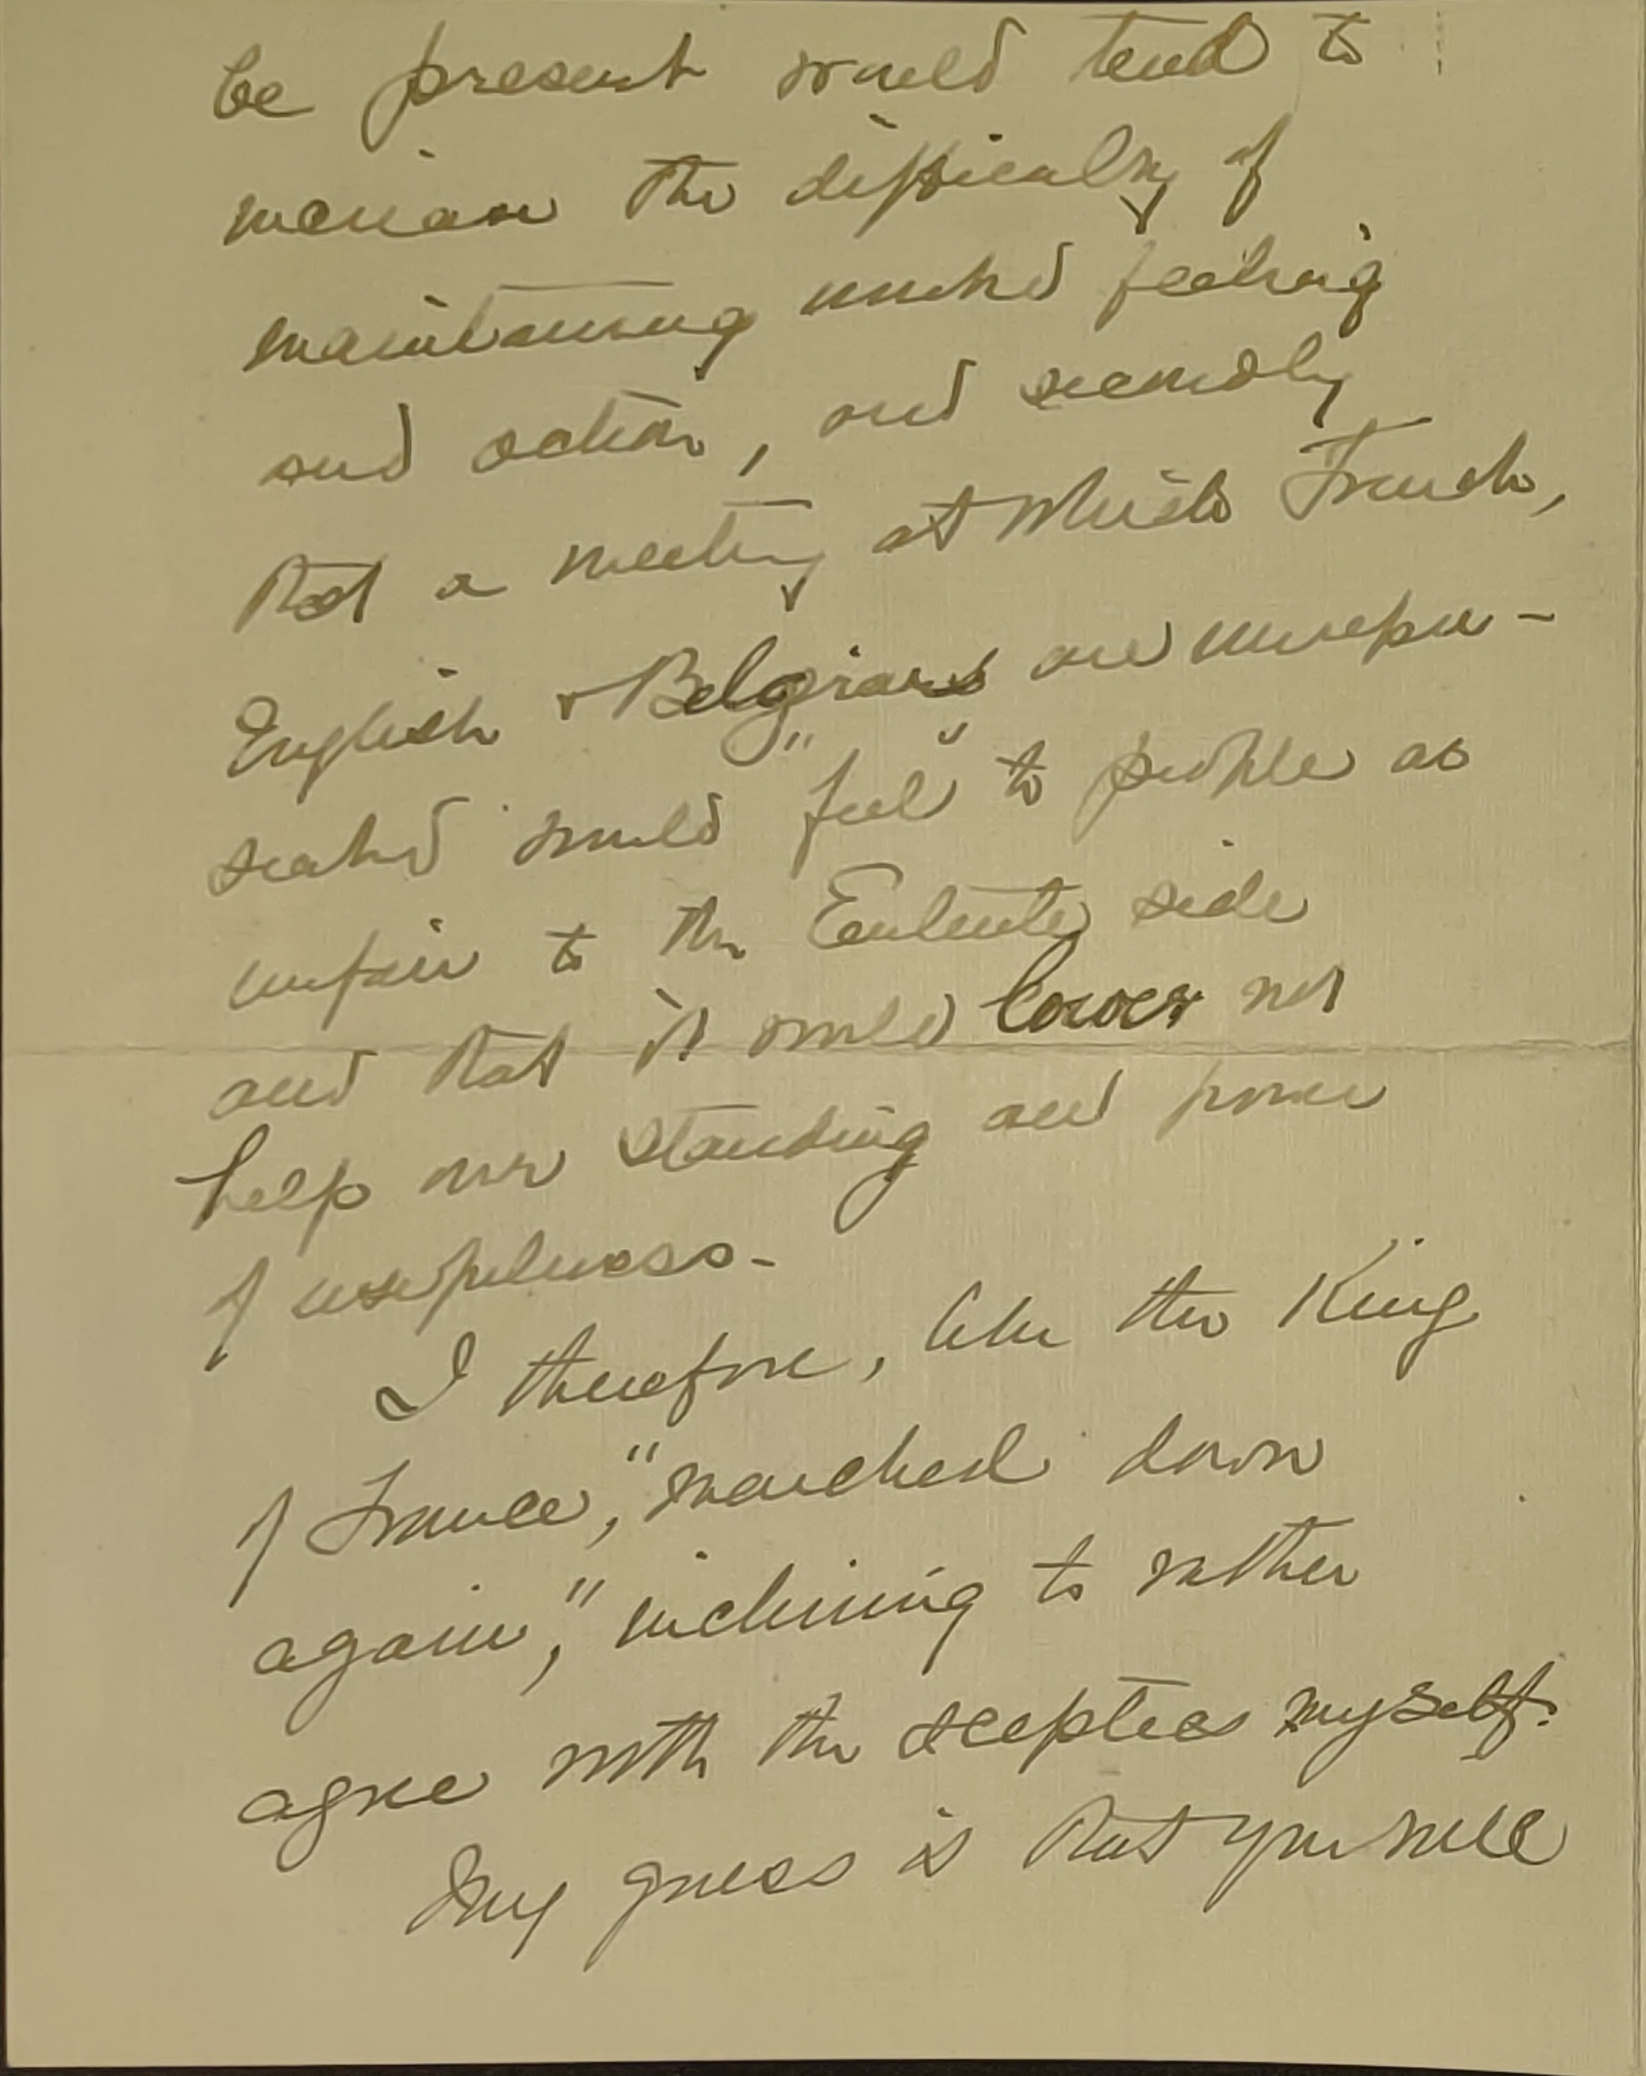 be present would tend to
increase the difficulty of
maintaining united feeling
and action, and secondly
that a meeting at which French,
English & Belgians are unrepre-
sented would "feel" to people as
unfair to the Entente side
and that it would lower not
help our standing and power
of usefulness-
I therefore, like the King
of France, "marched down
again," inclining to rather
agree with the sceptics myself.
My guess is that you will